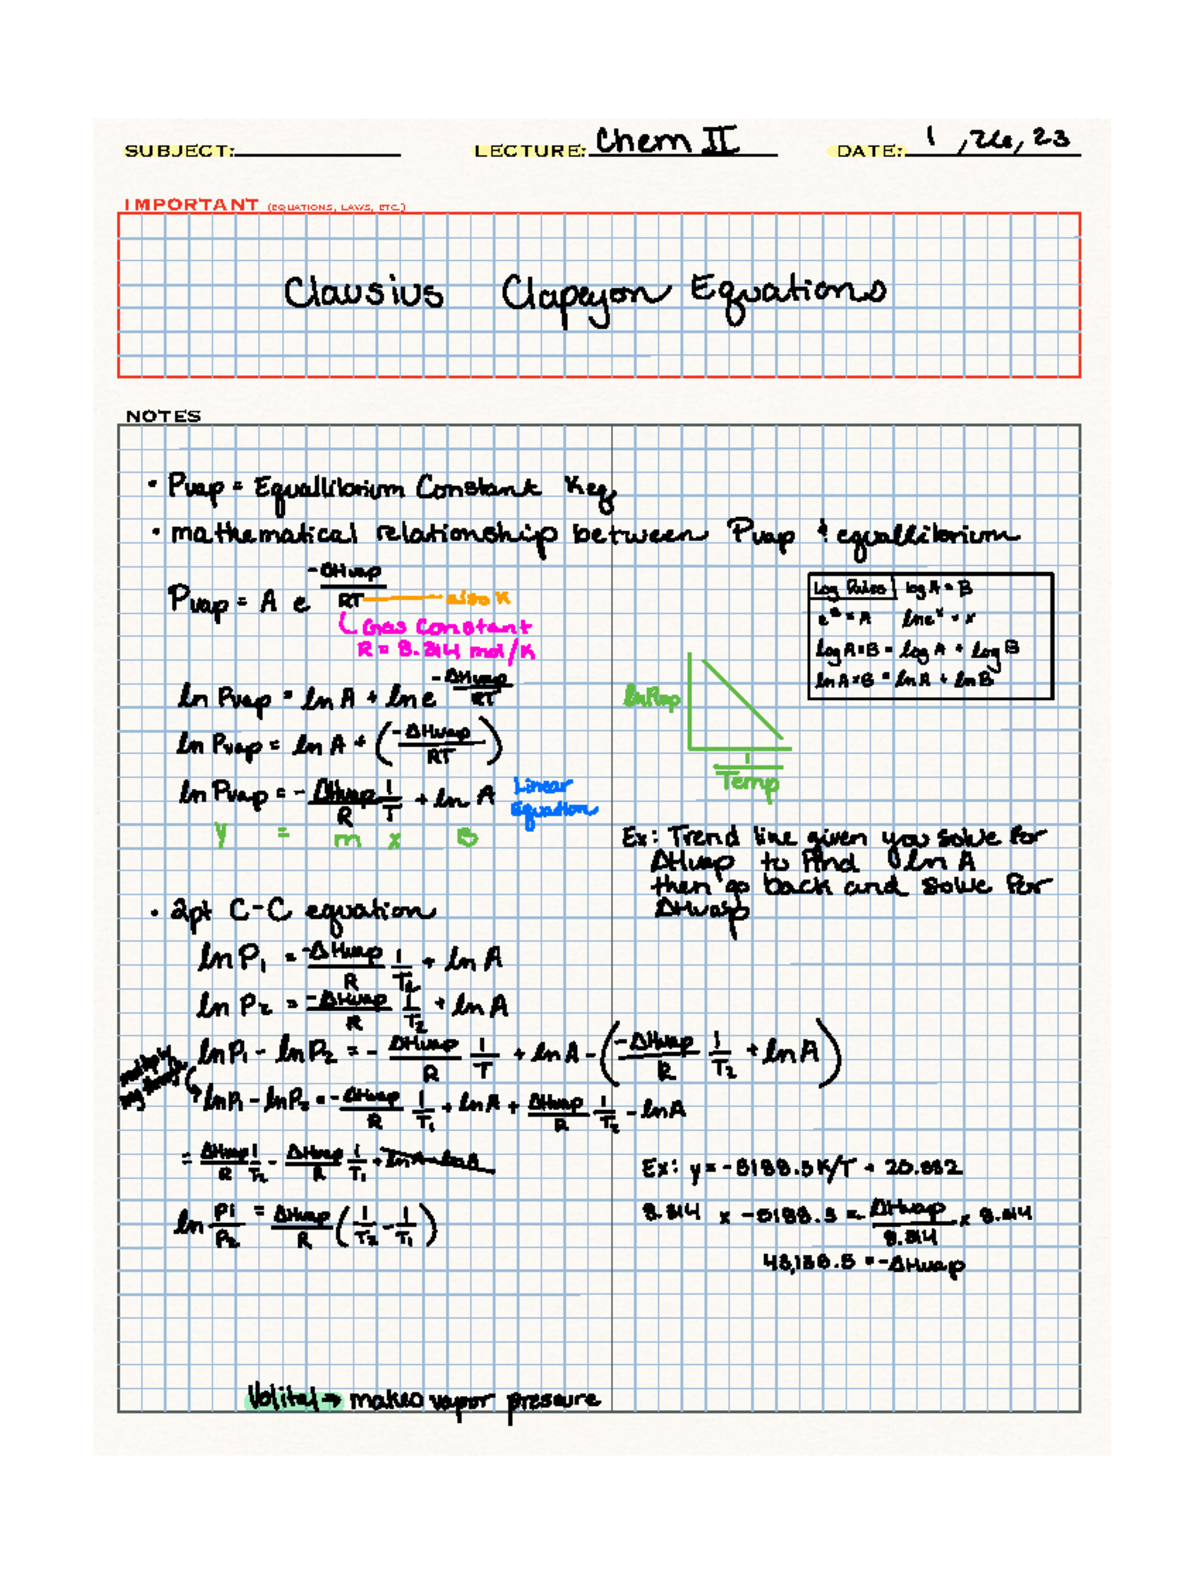 SUBJECT: LECTURE: Chem II DATE: 1, 26, 23
IMPORTANT (EQUATIONS, LAWS, ETC.)
Clausius Clapeyon Equations
NOTES
• Pvap = Equallilbrium Constant Keq
• mathematical relationship between Pvap & equallibrium
Pvap = A e^(-ΔHvap/RT) also K
Gas Constant
R = 8.314 mol/K
ln Pvap = ln A + ln e^(-ΔHvap/RT)
ln Pvap = ln A + (-ΔHvap/RT)
ln Pvap = - ΔHvap/R 1/T + ln A Linear Equation
y = m x B
Log Rules log A = B
e^B = A ln e^x = x
log A×B = log A + log B
ln A×B = ln A + ln B
ln Pvap
1/Temp
Ex: Trend line given you solve for
ΔHvap to find ln A
then go back and solve for
ΔHvap
• 2pt C-C equation
ln P1 = -ΔHvap/R 1/T2 + ln A
ln P2 = -ΔHvap/R 1/T2 + ln A
ln P1 - ln P2 = - ΔHvap/R 1/T + ln A - (-ΔHvap/R 1/T2 + ln A)
ln P1 - ln P2 = -ΔHvap/R 1/T1 + ln A + ΔHvap/R 1/T2 - ln A
= ΔHvap/R 1/T2 - ΔHvap/R 1/T1 +
ln P1/P2 = ΔHvap/R (1/T2 - 1/T1)
Ex: y = -5188.5K/T + 20.
8.314 x -5188.5 = ΔHvap/8.314 x 8.314
43,138.5 = -ΔHvap
Volital → makes vapor pressure